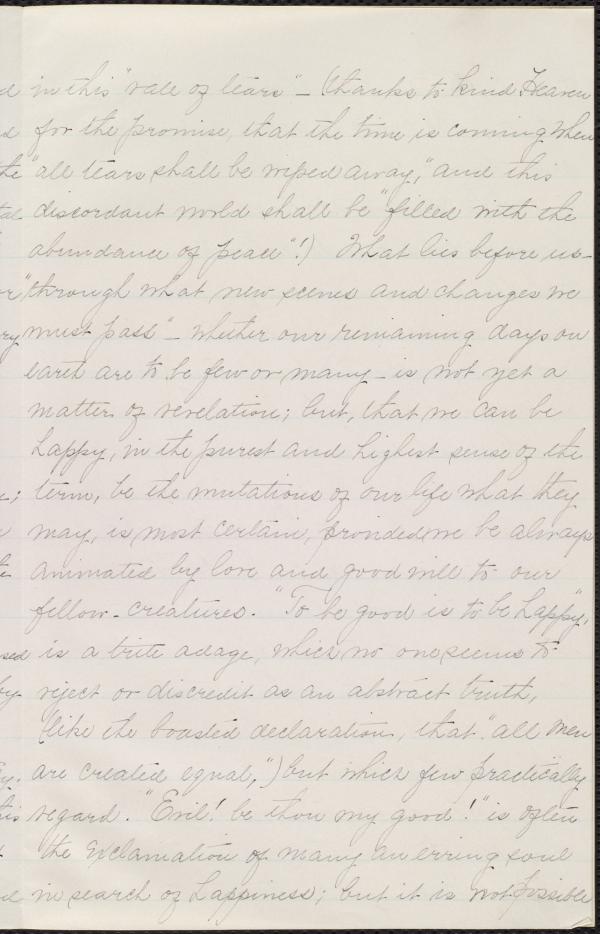 in this "vale of tears" – (thanks to kind Heaven
for the promise, that the time is coming when
"all tears shall be wiped away," and this
discordant world shall be "filled with the
abundance of peace"!) What lies before us –
"through what new scenes and changes we
must pass" – whether our remaining days on
earth are to be few or many – is not yet a
matter of revelation; but, that we can be
happy, in the purest and highest sense of the
term, be the mutations of our life what they
may, is most certain, provided we be always
animated by love and good will to our
fellow-creatures. "To be good is to be happy",
is a trite adage, which no one seems to
reject or discredit as an abstract truth,
(like the boasted declaration, that "all men
are created equal,") but which few practically
regard. "Evil! be thou my good!" is often
the exclamation of many an erring soul
in search of happiness; but it is not possible